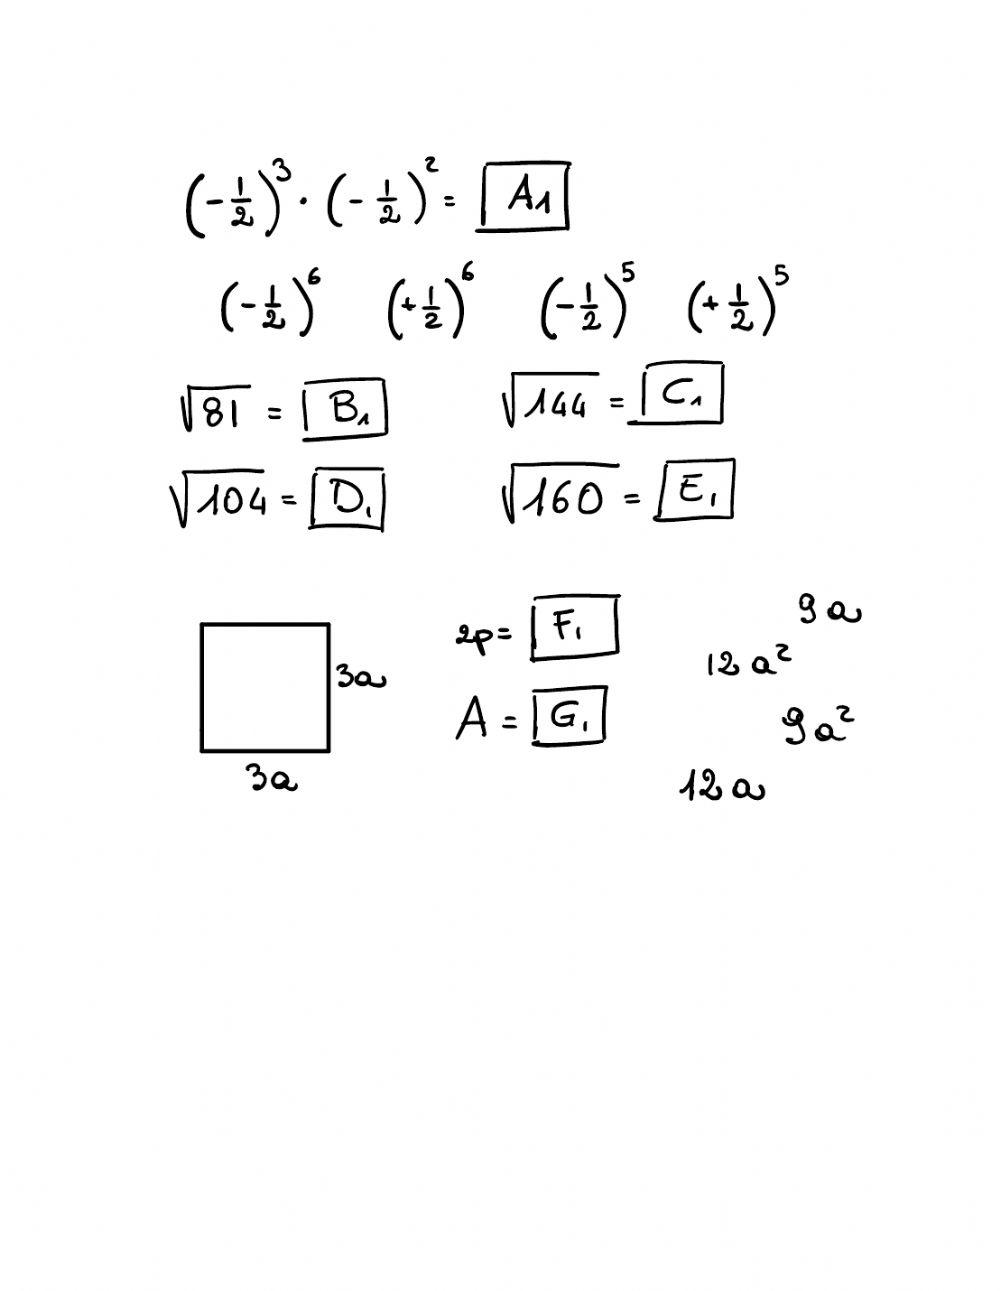 (-1/2)³ · (-1/2)² = A₁
(-1/2)⁶ (+1/2)⁶ (-1/2)⁵ (+1/2)⁵
√81 = B₁ √144 = C₁
√104 = D₁ √160 = E₁
3a
3a
2p = F₁
A = G₁
9a
12a²
9a²
12a